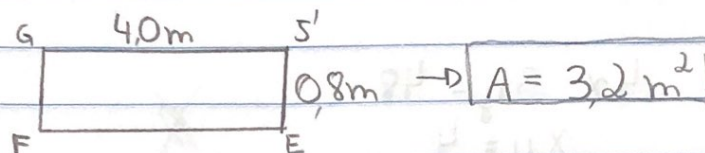 G 4,0m S'
0,8m → A = 3,2 m²
F E